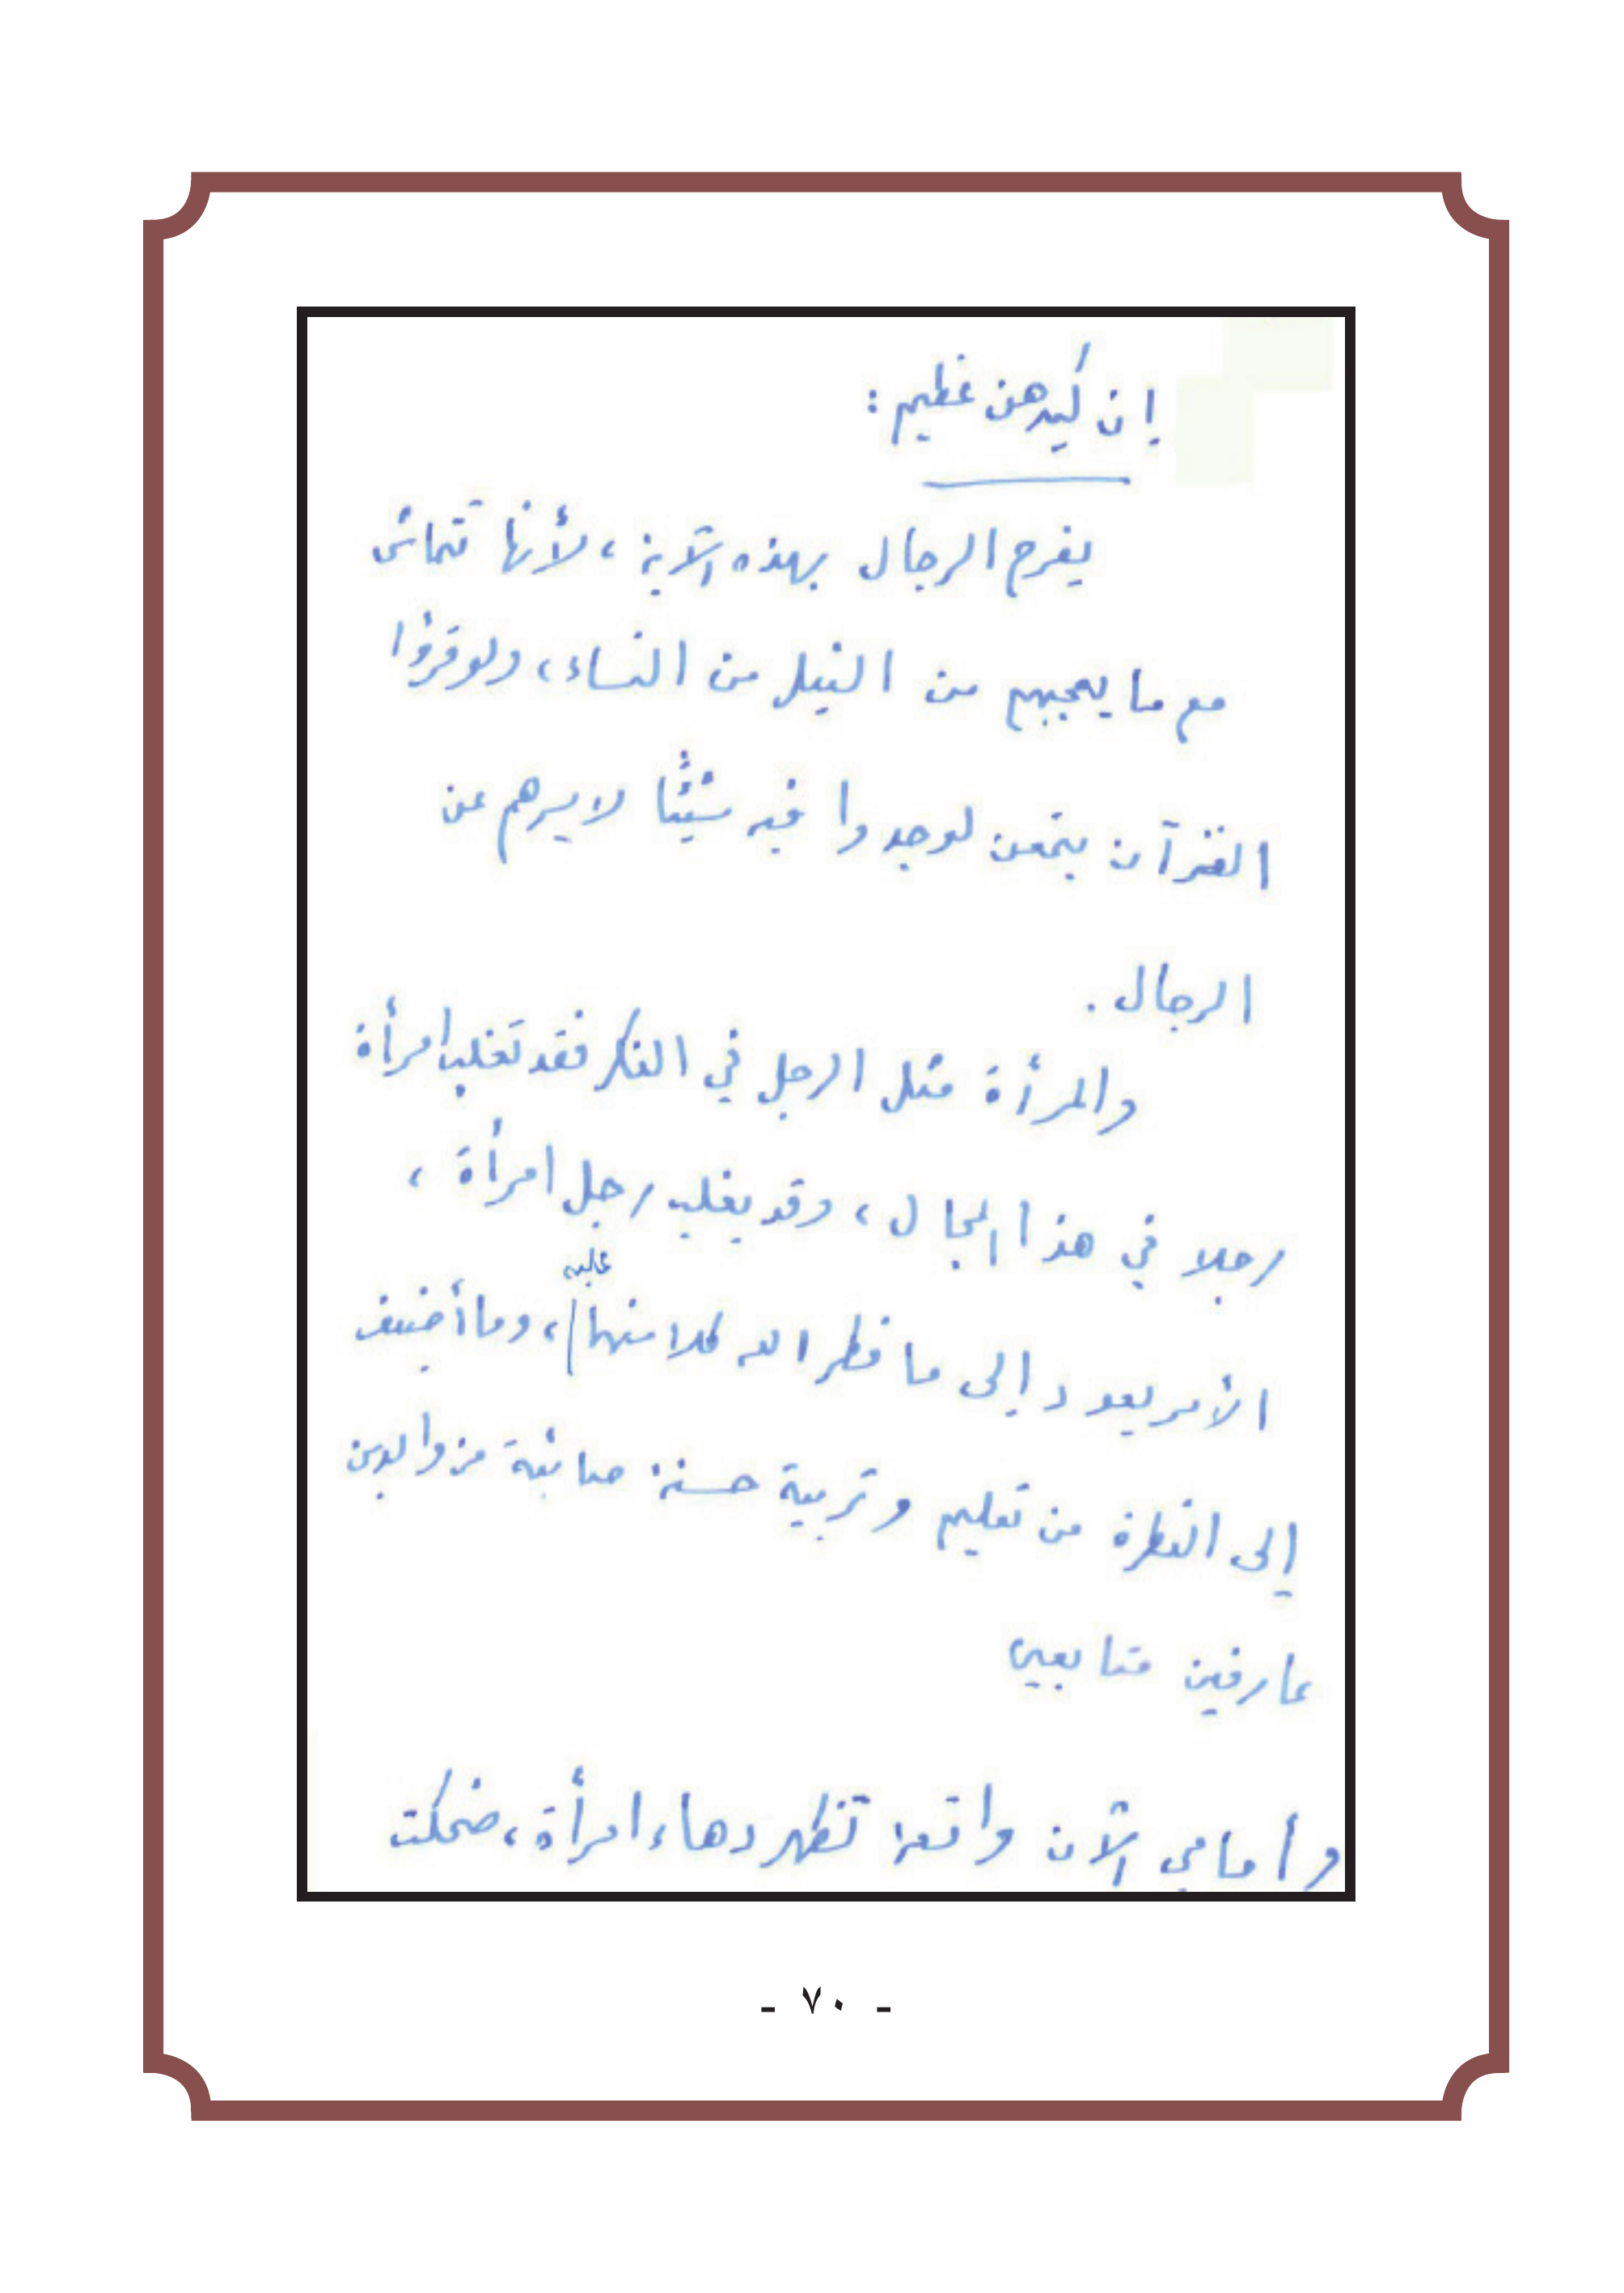 إن كيدهن عظيم :
يفرح الرجال بهذه الآية ، لأنها تتماشى
مع ما يعجبهم من النيل من النساء ، ولو قرؤا
القرآن بتمعن لوجدوا فيه شيئًا لا يسرهم عن
الرجال .
والمرأة مثل الرجل في الفكر فقد تغلب امرأة
رجلا في هذا المجال ، وقد يغلب رجل امرأة ،
الأمر يعود إلى ما فطر الله كلا منهما عليه ، وما أضيف
إلى الفطرة من تعليم وتربية حسنة صائبة من والدين
عارفين متابعين
وأمامي الآن واقعة تظهر دهاء امرأة ، ضحكت
- ٧٠ -